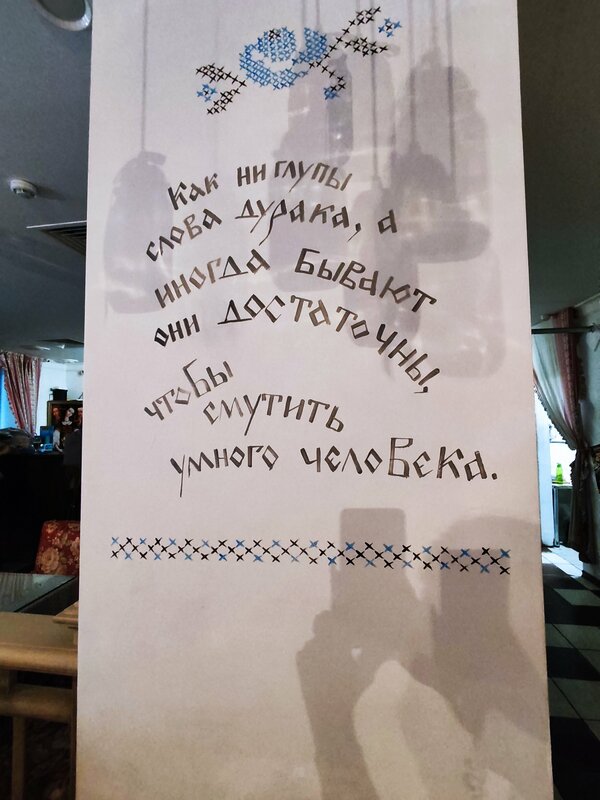 Как ни глупы
слова дурака, а
иногда бывают
они достаточны,
чтобы
смутить
умного человека.